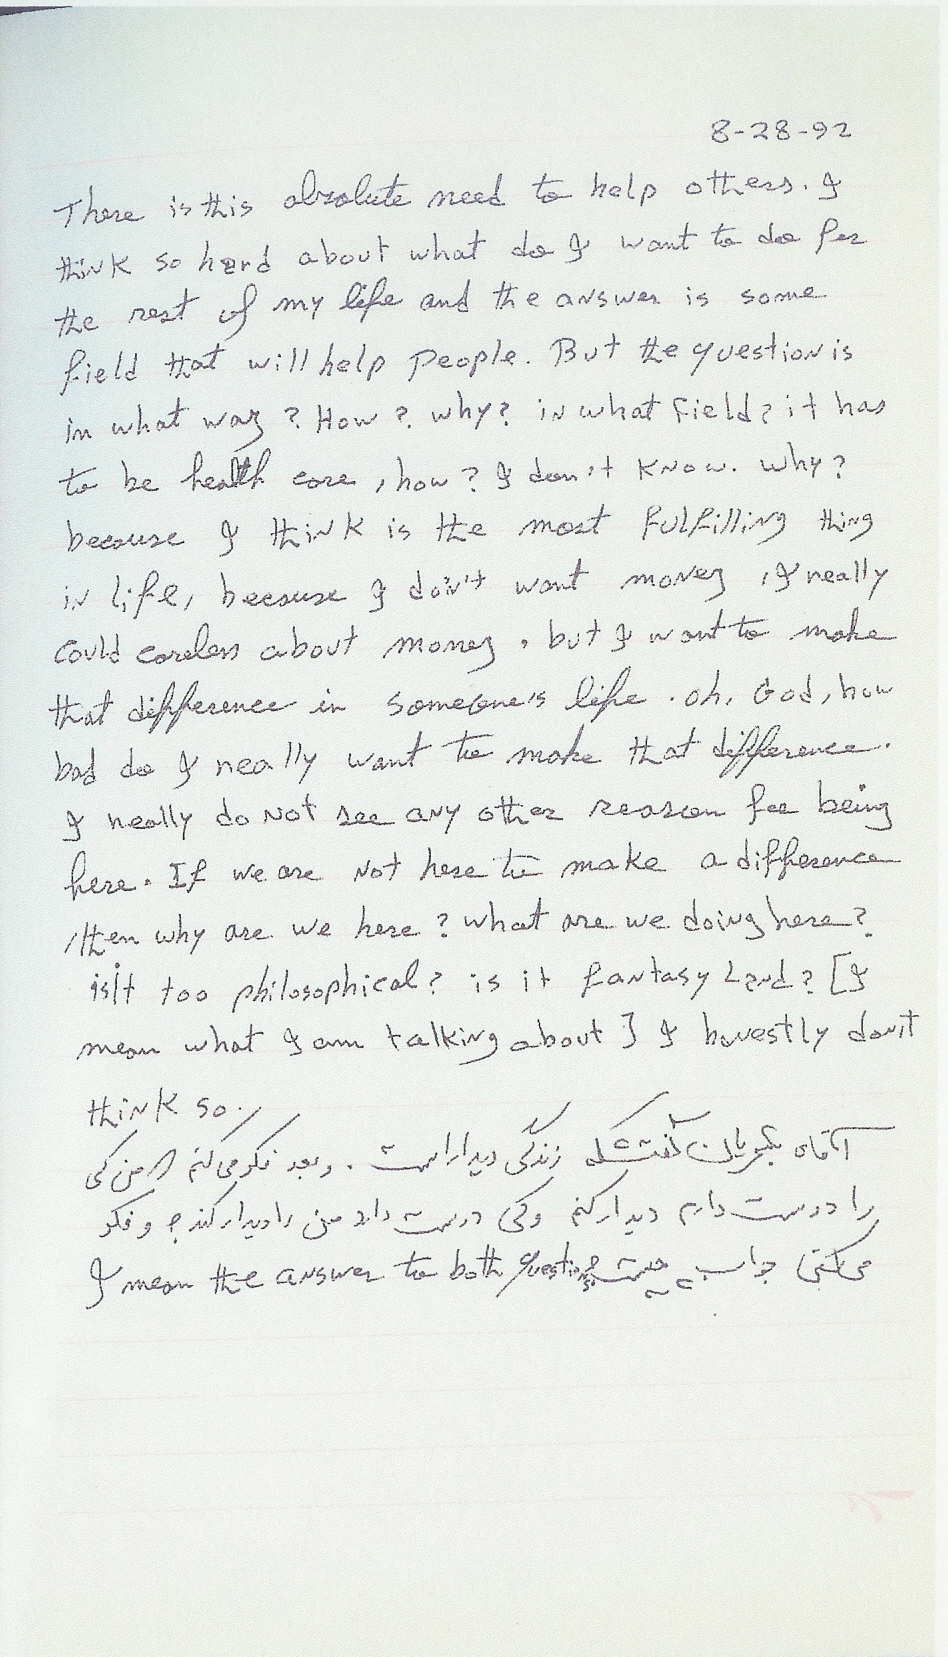 8-28-92
There is this absolute need to help others. I
think so hard about what do I want to do for
the rest of my life and the answer is some
field that will help people. But the question is
in what way? How? why? in what field? it has
to be health care, how? I don't know. why?
because I think is the most fulfilling thing
in life, because I don't want money, I really
could careless about money, but I want to make
that difference in someone's life. oh, God, how
bad do I really want to make that difference.
I really do not see any other reason for being
here. If we are not here to make a difference
, then why are we here? what are we doing here?
isit too philosophical? is it fantasy Land? [I
mean what I am talking about] I honestly don't
think so.
زندگی دیدار است. و بعد فکر می‌کنم من کی
را دوست دارم دیدار کنم و کی دوست دارد من را دیدار کند؟ و فکر
می‌کنی جواب چیست؟ I mean the answer to both